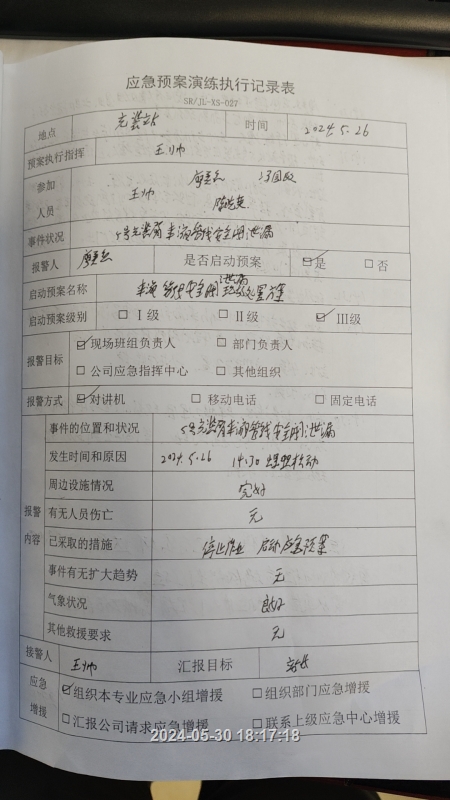 应急预案演练执行记录表
SR/JL-XS-027
地点 充装站 时间 2024.5.26
预案执行指挥 王帅
参加人员 王帅
事件状况 5号充装有车液管线安全阀泄漏
报警人 是否启动预案 ☑是 ☐否
启动预案名称 泄漏
启动预案级别 ☐Ⅰ级 ☐Ⅱ级 ☑Ⅲ级
报警目标 ☑现场班组负责人 ☐部门负责人
☐公司应急指挥中心 ☐其他组织
报警方式 ☑对讲机 ☐移动电话 ☐固定电话
报警内容
事件的位置和状况 安全阀泄漏
发生时间和原因 2024.5.26 14:30 松动
周边设施情况 完好
有无人员伤亡 无
已采取的措施 停止作业 启动应急预案
事件有无扩大趋势 无
气象状况 良好
其他救援要求 无
接警人 王帅 汇报目标 站长
应急增援 ☑组织本专业应急小组增援 ☐组织部门应急增援
☐汇报公司请求应急增援 ☐联系上级应急中心增援
2024-05-30 18:17:18